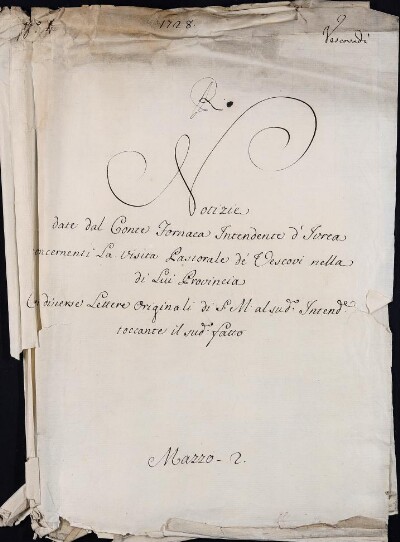 1728.
Vescovadi
R.
Notizie
date dal Conte Fornaca Intendente d'Ivrea
concernenti La Visita Pastorale de' Vescovi nella
di Lui Provincia
diverse Lettere Originali di S. M. al sud.º Intend.e
toccante il sud.º fatto
Mazzo - 2.